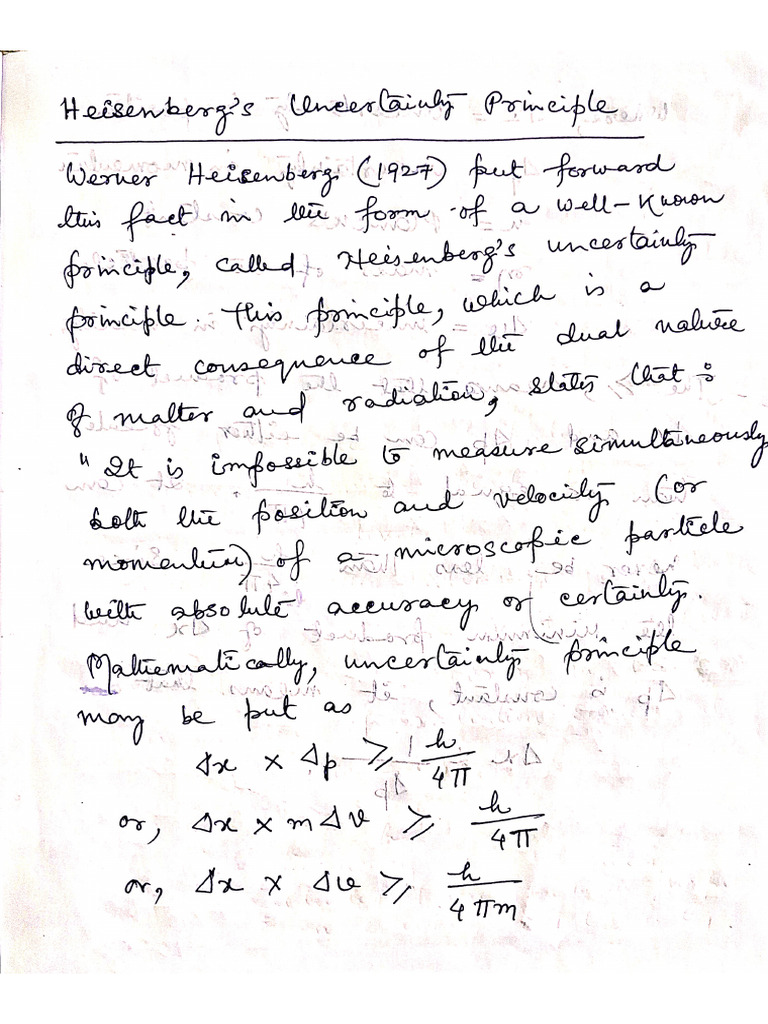 Heisenberg's Uncertainty Principle
Werner Heisenberg (1927) put forward
this fact in the form of a well-known
principle, called Heisenberg's uncertainty
principle. This principle, which is a
direct consequence of the dual nature
of matter and radiation, states that :
"It is impossible to measure simultaneously
both the position and velocity (or
momentum) of a microscopic particle
with absolute accuracy or certainty.
Mathematically, uncertainty principle
may be put as
Δx × Δp ≥ h/4π
or, Δx × mΔv ≥ h/4π
or, Δx × Δv ≥ h/4πm